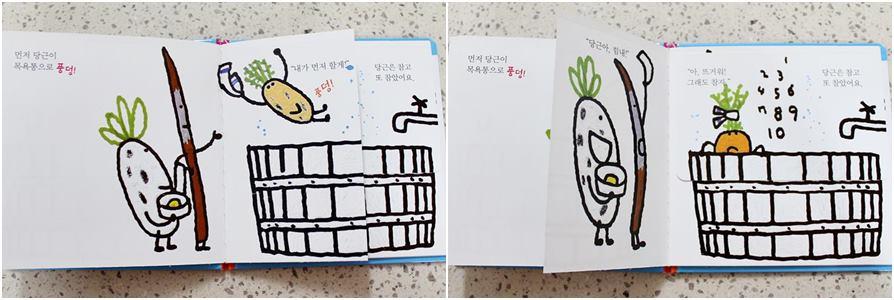 먼저 당근이
목욕통으로 풍덩!
"내가 먼저 할게!"
풍덩!
당근은 참고
또 참았어요.
먼저 당근이
목욕통으로 풍덩!
"당근아, 힘내!"
"아, 뜨거워!
그래도 참자."
1
2 3
4 5 6
7 8 9
10
당근은 참고
또 참았어요.